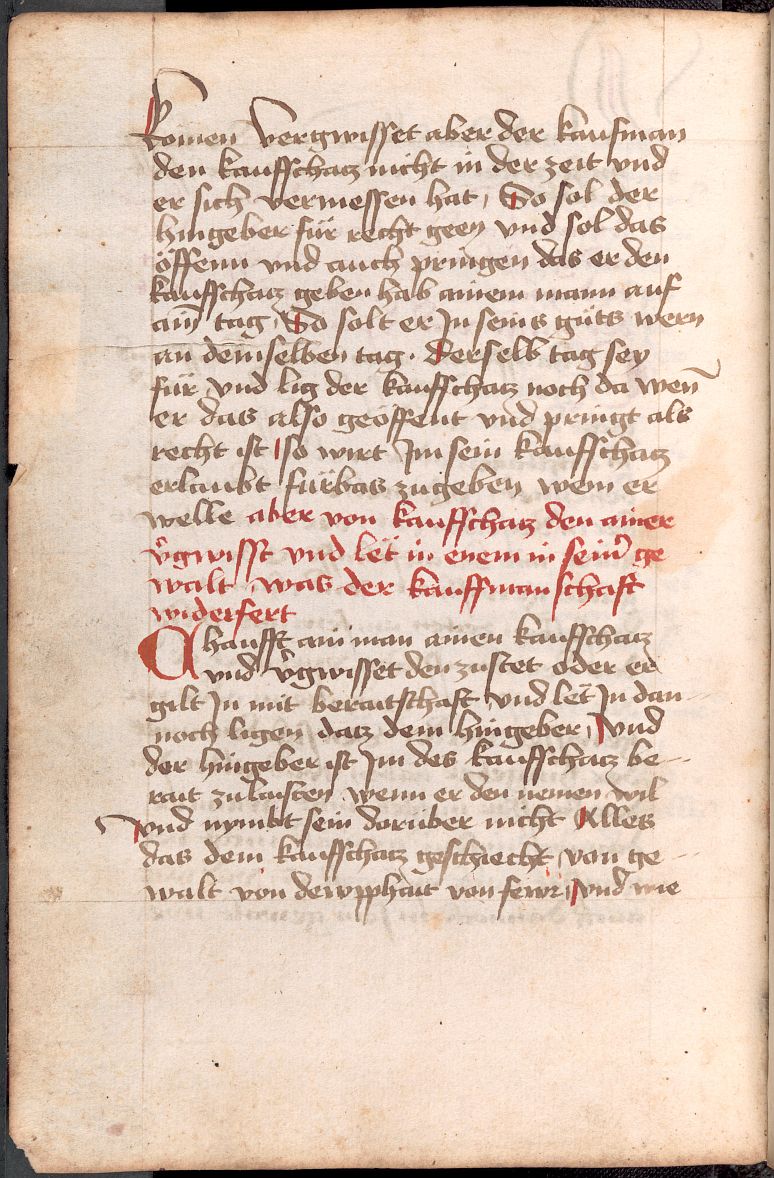 komen Vergwisset aber der kaufman
den kauffschatz nicht in der zeit vnd
er sich vermessen hat, So sol der
hingeber für recht geen vnd sol das
öffenn vnd auch pringen das er den
kauffschatz geben hab ainem mann auf
ain tag, So solt er Jn seins guts wern
an demselben tag. Derselb tag sey
für vnd lig der kauffschatz noch da wen̄
er das also geöffent vnd pringt als
recht ist so wirt Jm sein kauffschatz
erlaubt fürbas zugeben wem er
welle aber von kauffschatz den ainer
v̓gwisst vnd let in enem in sein̓ ge
walt, was der kauffmanschaft
widerfert
Chaufft ain man ainen kauffschatz
vnd v̓gwisset den zustet oder er
gilt Jn mit beraitschaft vnd let Jn dan-
noch ligen datz dem hingeber, Vnd
der hingeber ist Jm des kauffschatz be-
rait zulaisten wenn er den nemen wil
vnd nymbt sein darüber nicht Alles
das dem kauffschatz geschiecht, von ge-
walt von dewpphait von fewr, vnd wie